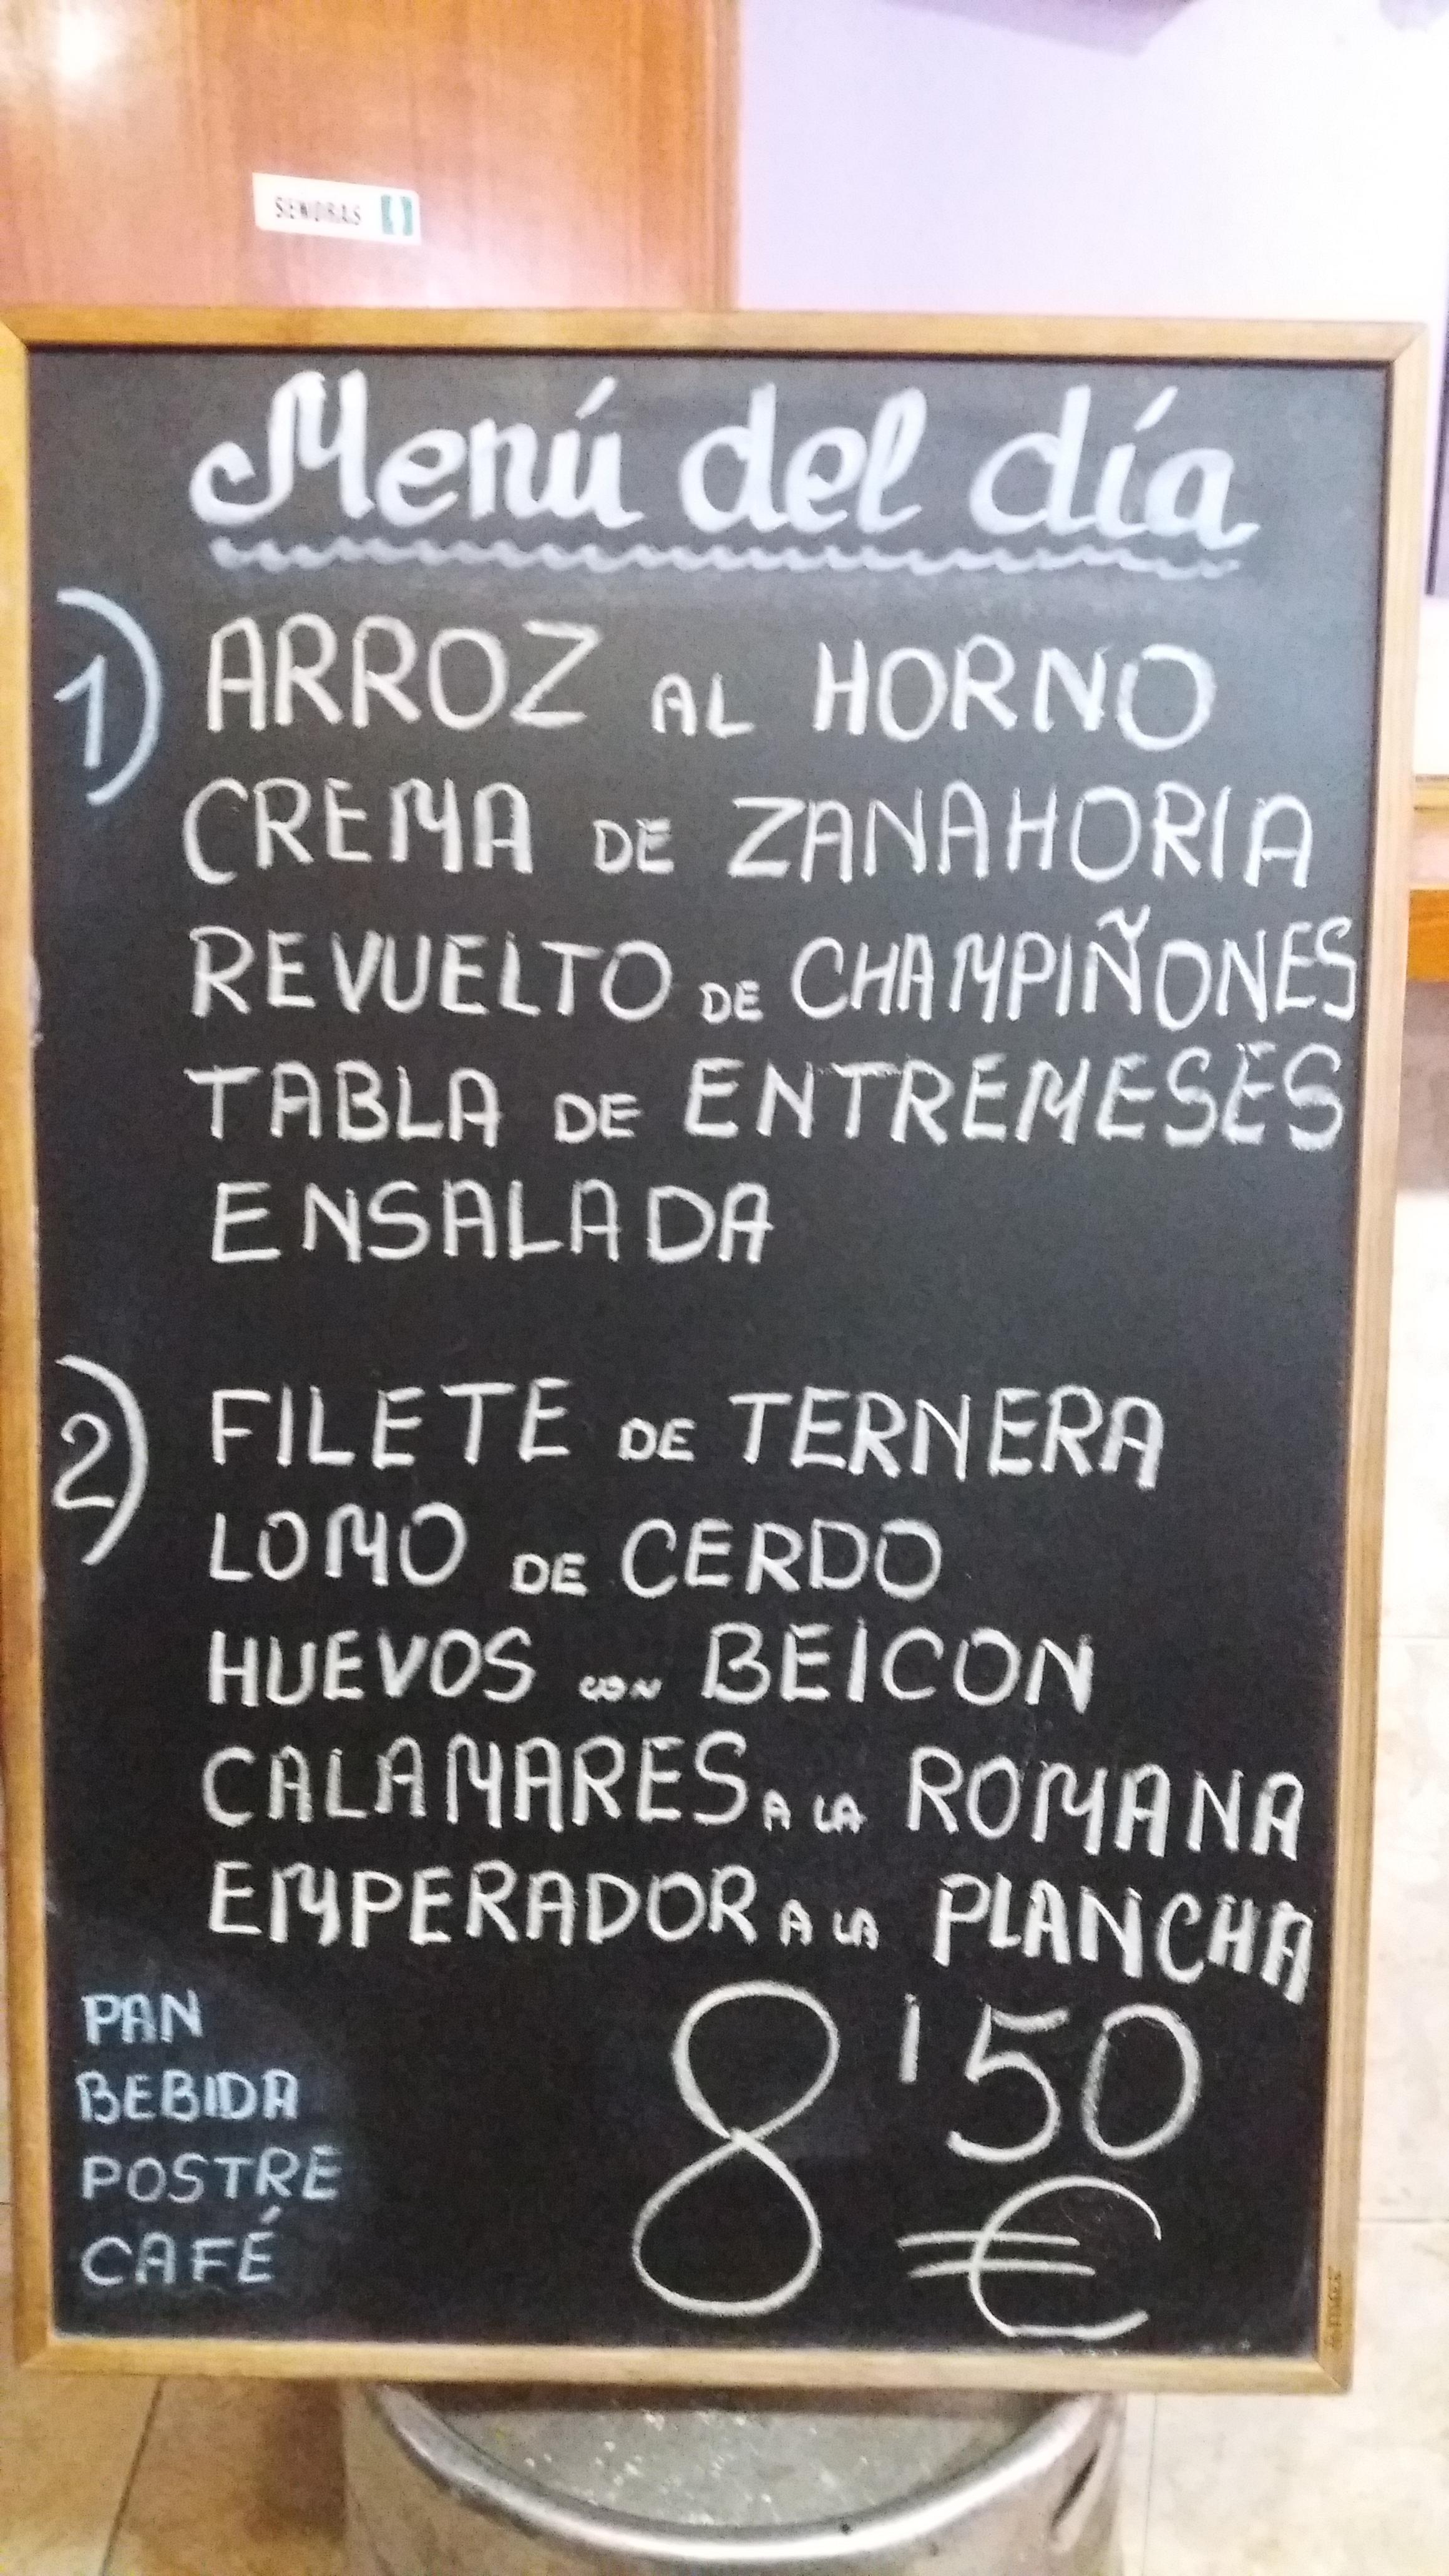 SEÑORAS
Menú del día
1) ARROZ AL HORNO
CREMA DE ZANAHORIA
REVUELTO DE CHAMPIÑONES
TABLA DE ENTREMESES
ENSALADA
2) FILETE DE TERNERA
LOMO DE CERDO
HUEVOS CON BEICON
CALAMARES A LA ROMANA
EMPERADOR A LA PLANCHA
PAN
BEBIDA
POSTRE
CAFÉ
8'50
€